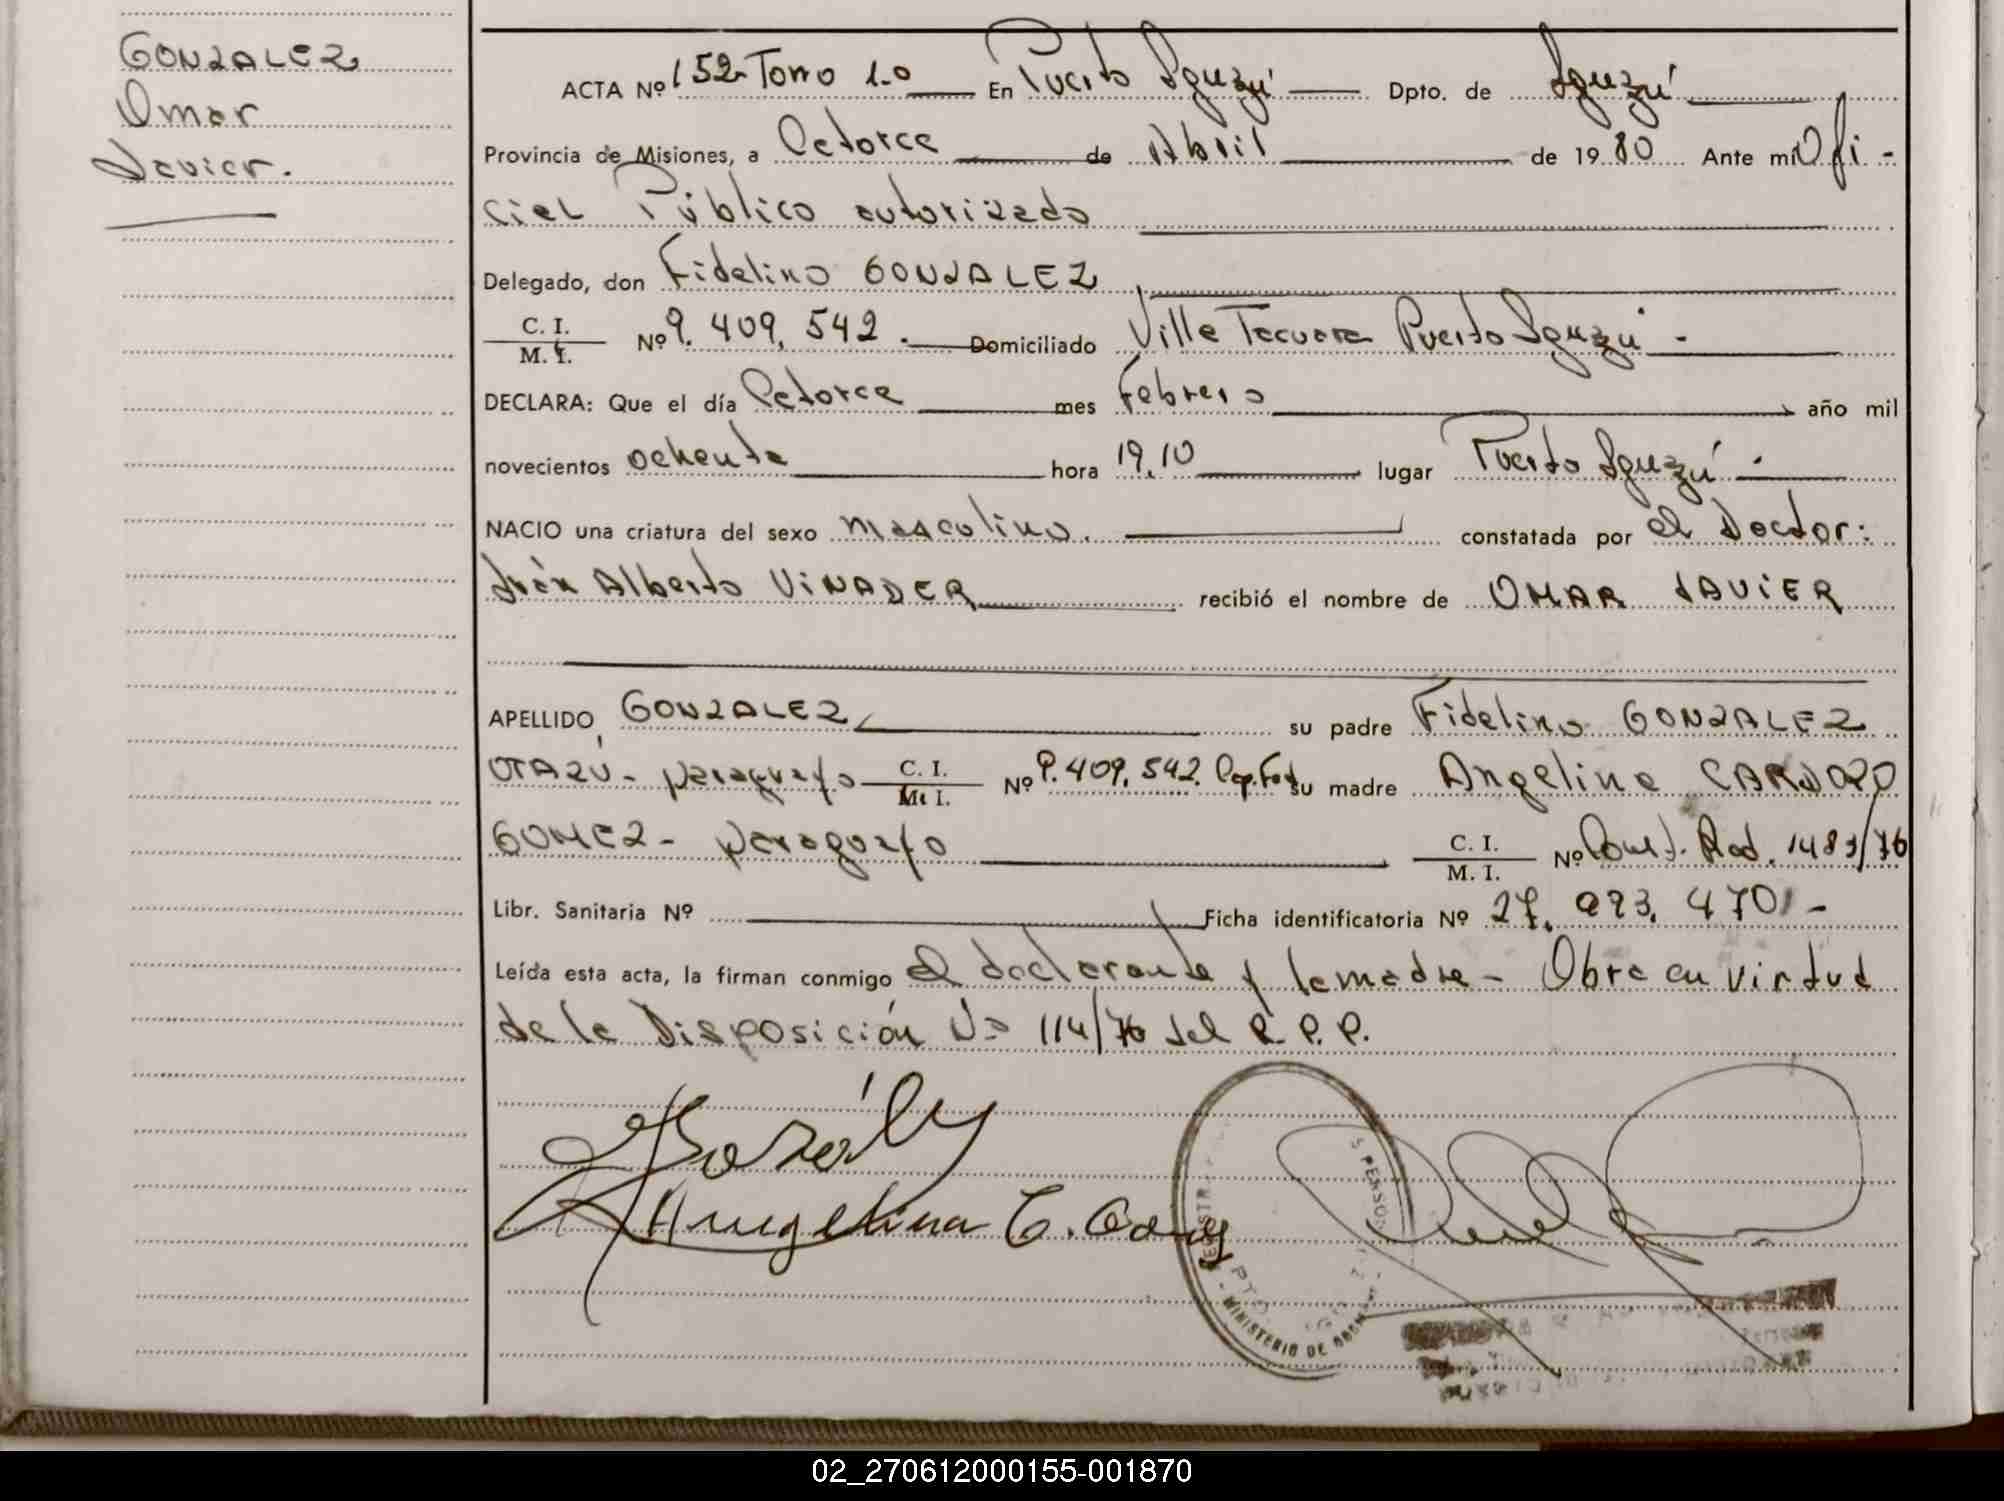 GONZALEZ
Omar
Javier.
ACTA Nº 152- Tomo 1-o En Puerto Iguazú Dpto. de Iguazú
Provincia de Misiones, a Catorce de Abril de 1980 Ante mi Ofi-
cial Público autorizado
Delegado, don Fidelino GONZALEZ
C. I.
M. I. Nº 9.409.542.- Domiciliado Villa Tacuara Puerto Iguazú -
DECLARA: Que el día Catorce mes Febrero año mil
novecientos ochenta hora 19,10 lugar Puerto Iguazú -
NACIO una criatura del sexo masculino. constatada por el Doctor:
Alberto VINADER recibió el nombre de OMAR JAVIER
APELLIDO, GONZALEZ su padre Fidelino GONZALEZ
OTAZÚ - paraguayo C. I.
M. I. Nº 9.409.542. Cap. Fed su madre Angelina CARDOZO
GOMEZ - paraguaya C. I.
M. I. Nº Const. Rad. 1483/76
Libr. Sanitaria Nº Ficha identificatoria Nº 27.993.470.-
Leída esta acta, la firman conmigo el declarante y la madre - Obra en virtud
de la Disposición Nº 114/76 del R.P.P.
Angelina C.
MINISTERIO DE
02_270612000155-001870